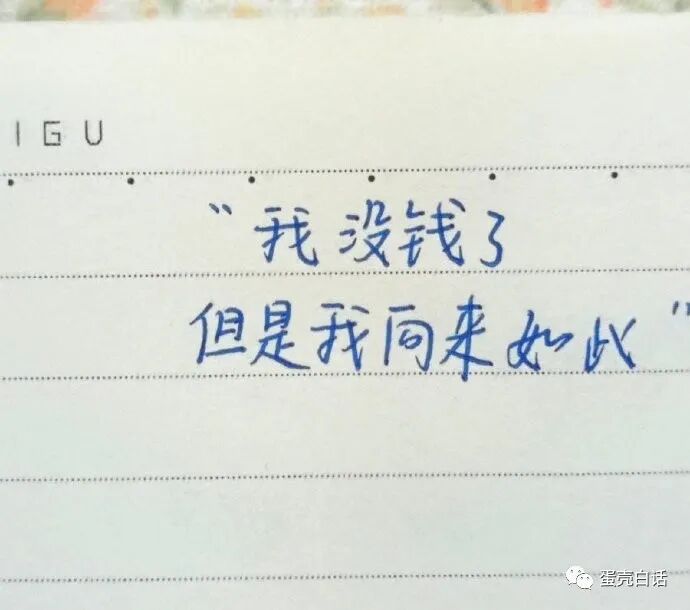 IGU
“我没钱了
但是我向来如此”
蛋壳白话